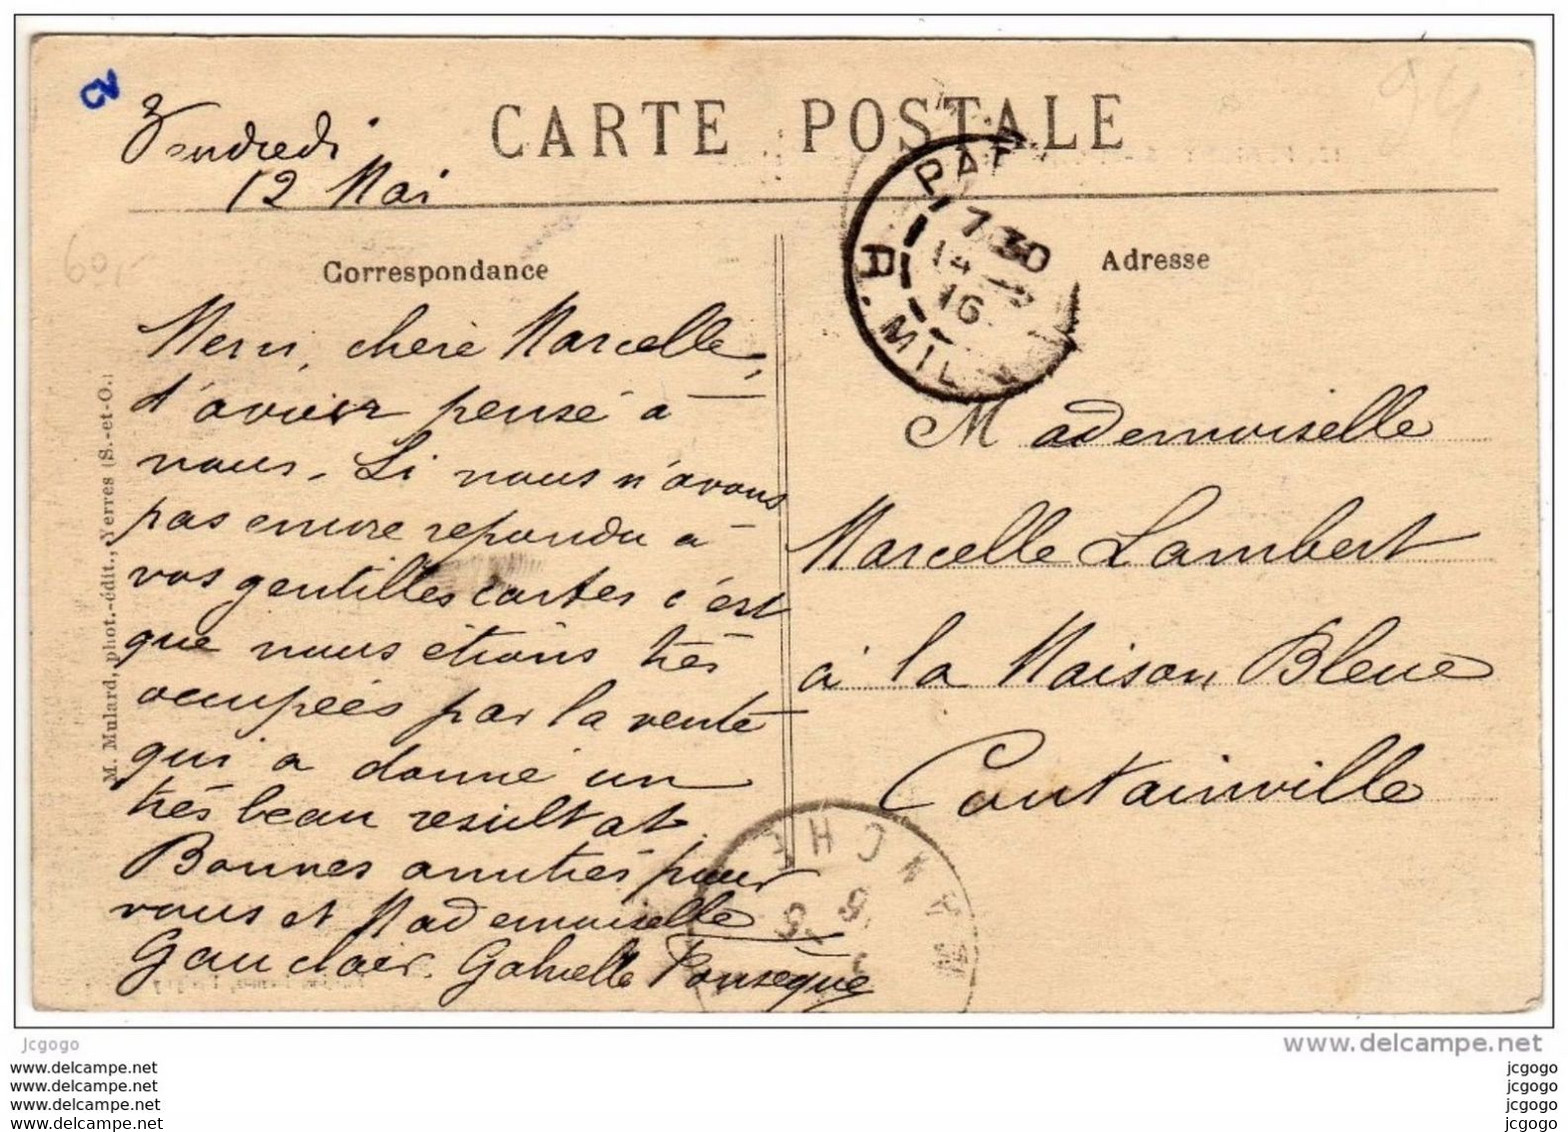 CARTE POSTALE
Vendredi
12 Mai
Correspondance
Adresse
Merci, chère Marcelle,
d'avoir pensé à
nous. Si nous n'avons
pas encore repondu à
vos gentilles cartes c'est
que nous étions très
occupées par la vente
qui a donné un
très beau résultat.
Bonnes amitiés pour
vous et Mademoiselle
Gauclair. Gabrielle Fonsèque
Mademoiselle
Marcelle Lambert
à la Maison Bleue
Coutainville
7 30
14
16
R. MIL
MANCHE
M. Mulard, phot.-édit., Yerres (S.-et-O.)
60,-
94
jcgogo
www.delcampe.net
www.delcampe.net
www.delcampe.net
www.delcampe.net
www.delcampe.net
jcgogo
jcgogo
jcgogo
jcgogo